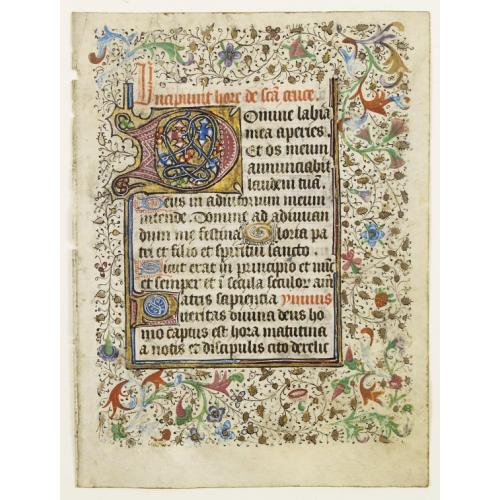 Incipiunt hore de scã cruce.
Domine labia
mea aperies.
Et os meum
annunciabit
laudem tuã.
Deus in adiutorium meum
intende. Domine ad adiuuan
dum me festina Gloria pa
tri et filio et spiritui sancto.
Sicut erat in principio et nũc
et semper et ĩ secula seculor̃ am̃
Patris sapientia ymnus
ueritas diuina deus ho
mo captus est hora matutina
a notis et discipulis cito derelic